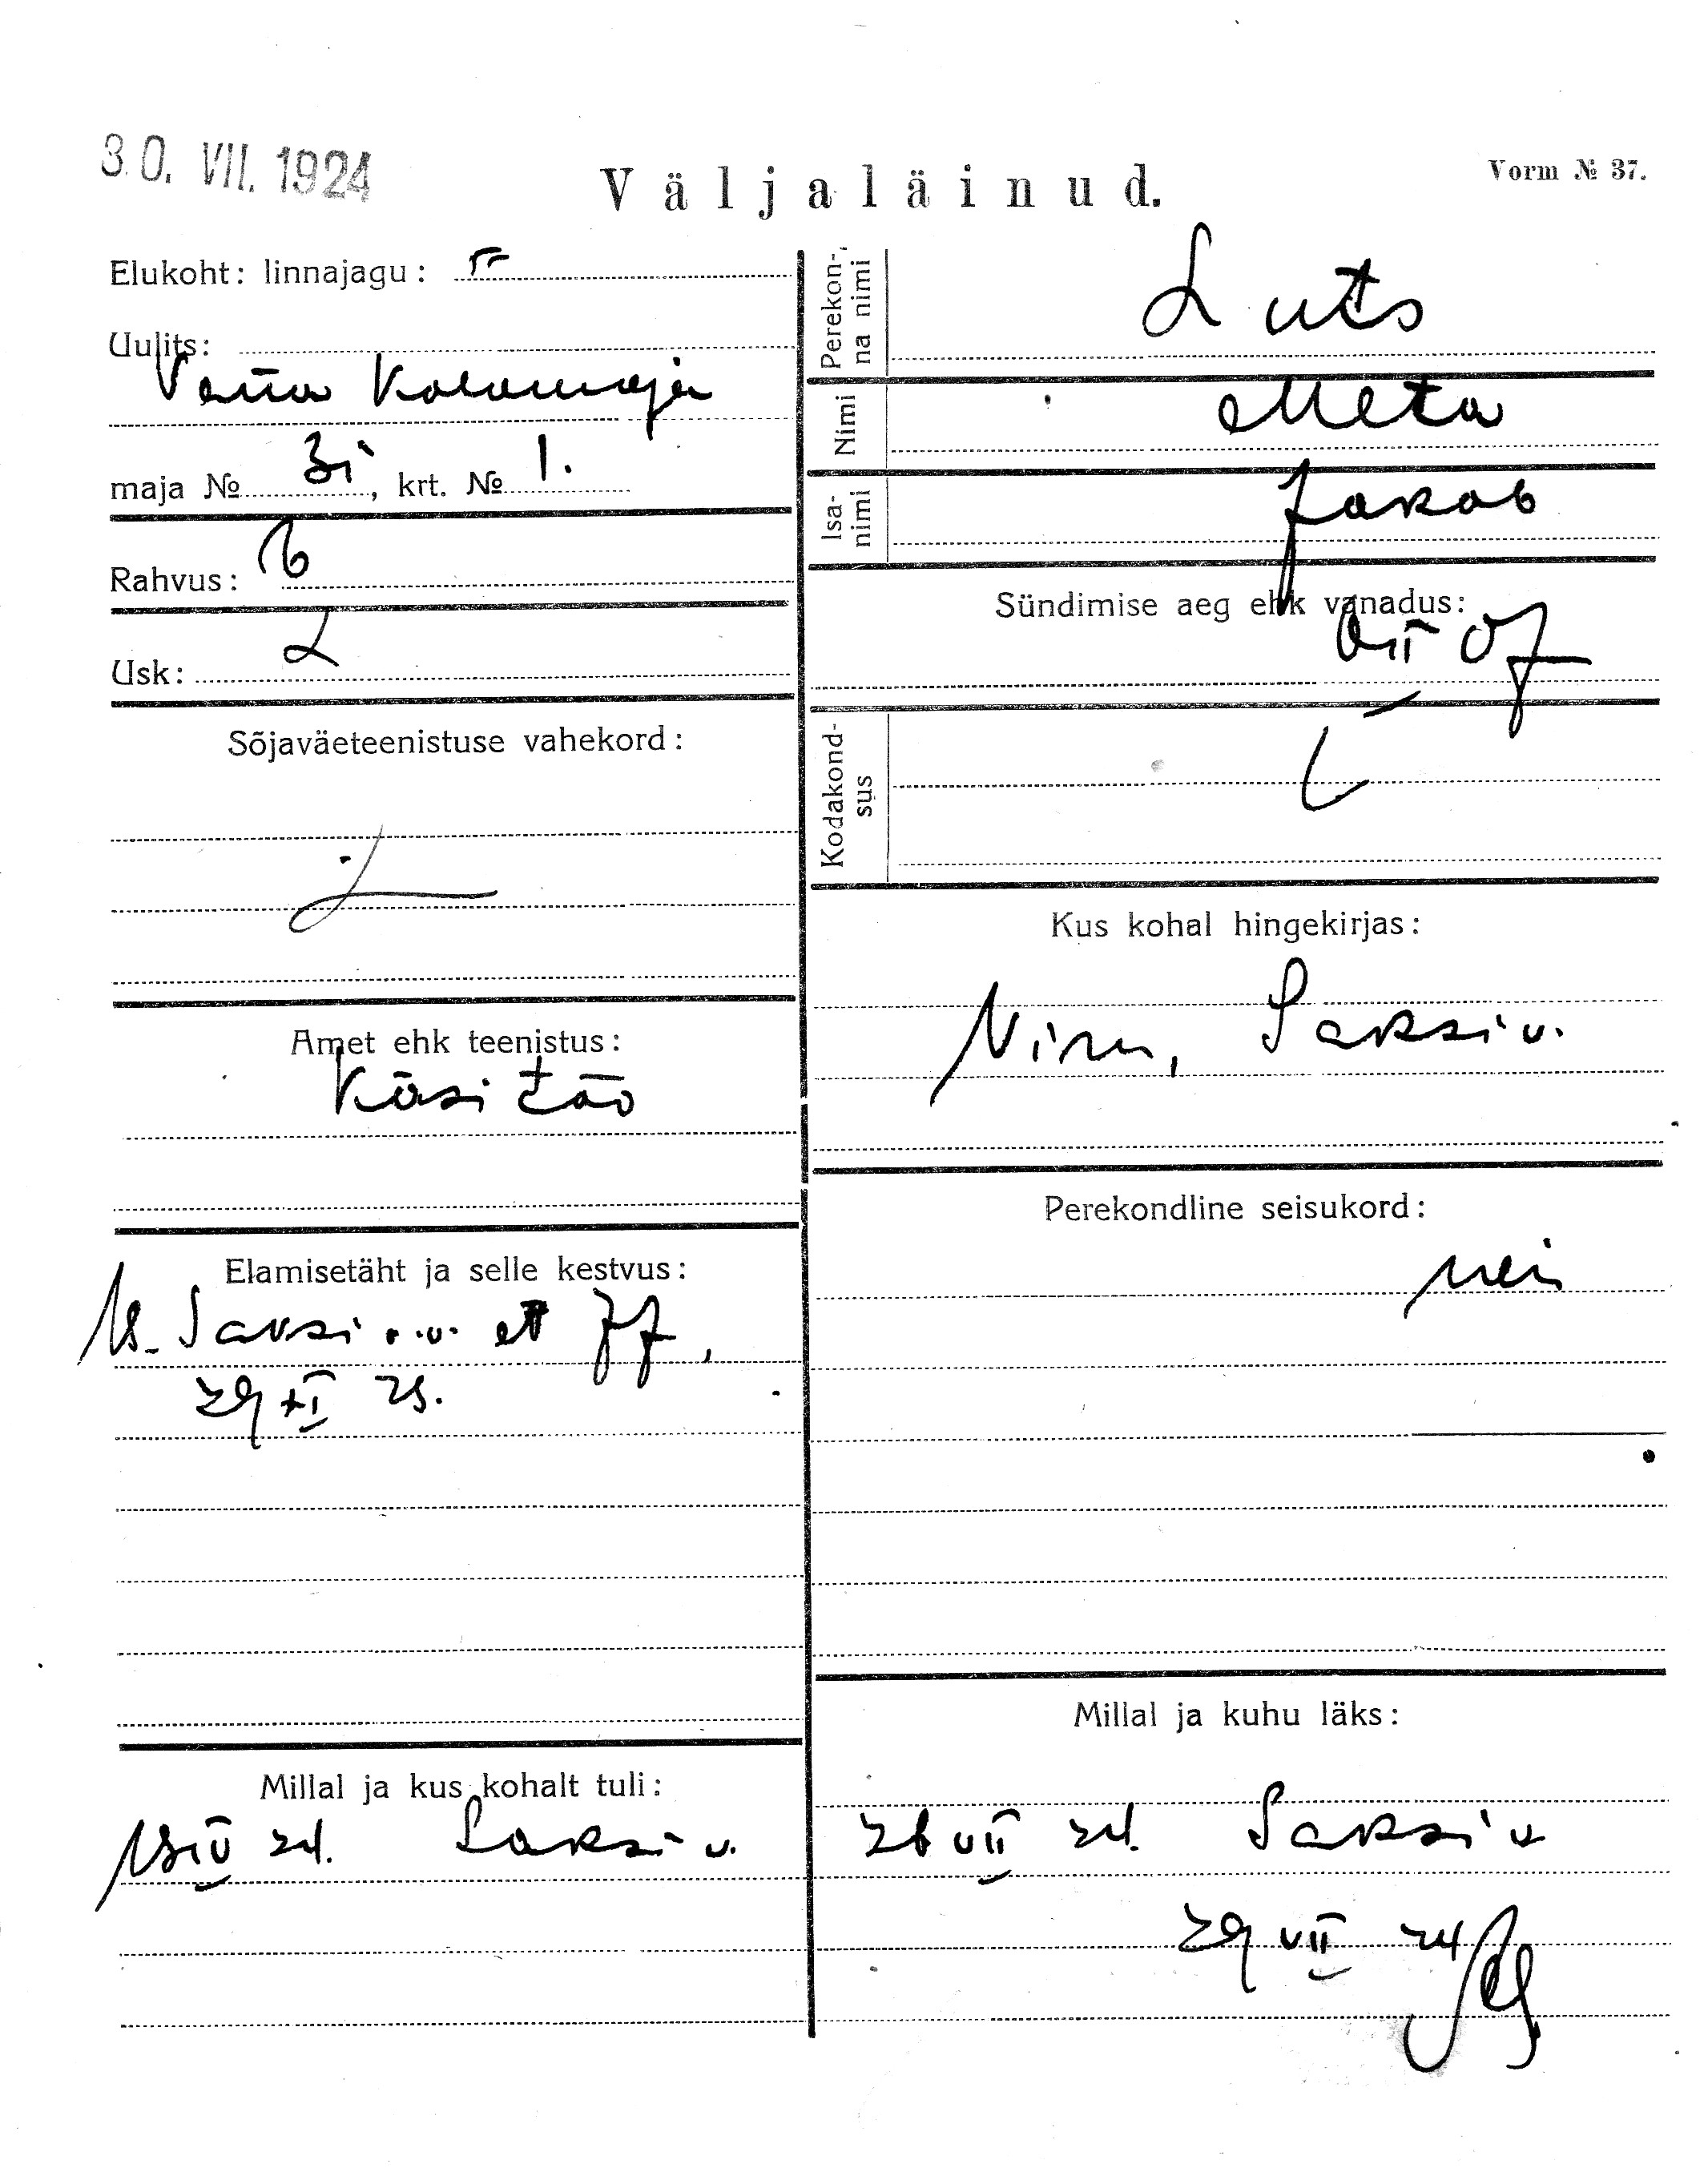 30. VII. 1924
Väljaläinud.
Vorm № 37.
Elukoht: linnajagu:
Uulits:
Vana Kalamaja
maja № 31, krt. № 1.
Rahvus: E
Usk: L
Sõjaväeteenistuse vahekord:
Amet ehk teenistus:
Käsitöö
Elamisetäht ja selle kestvus:
Saksi v. 77,
29 XI 23.
Millal ja kus kohalt tuli:
IV 24. Saksi v.
Perekonna nimi
Luts
Nimi
Meta
Isanimi
Jakob
Sündimise aeg ehk vanadus:
VII 07
Kodakondsus
Kus kohal hingekirjas:
Viru, Saksi v.
Perekondline seisukord:
nei
Millal ja kuhu läks:
26 VII 24. Saksi v
29 VII 24